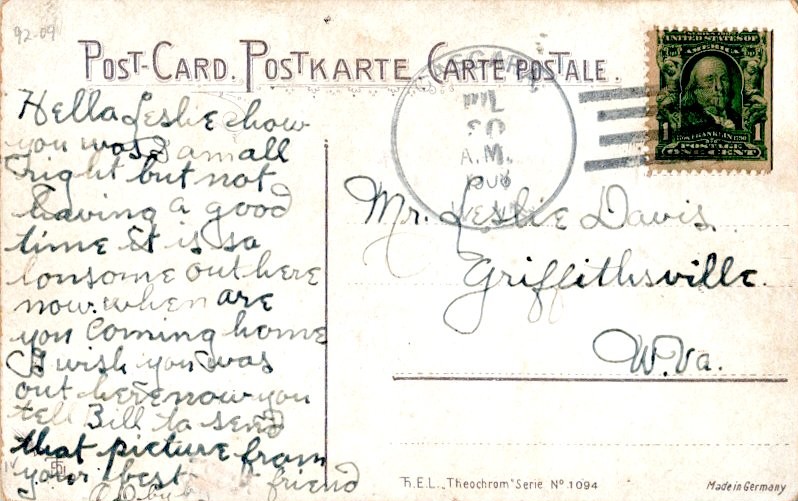 92-09
POST-CARD. POSTKARTE. CARTE POSTALE.
UNITED STATES OF
AMERICA
1 FRANKLIN 1
POSTAGE
ONE CENT
20
A.M.
W.VA.
Hello Leslie how
you was I am all
right but not
having a good
time it is so
lonsome out here
now. when are
you coming home
I wish you was
out here now you
tell Bill to send
that picture from
your best friend
Mr. Leslie Davis
Griffithsville.
W. Va.
H.E.L. „Theochrom" Serie No. 1094
Made in Germany